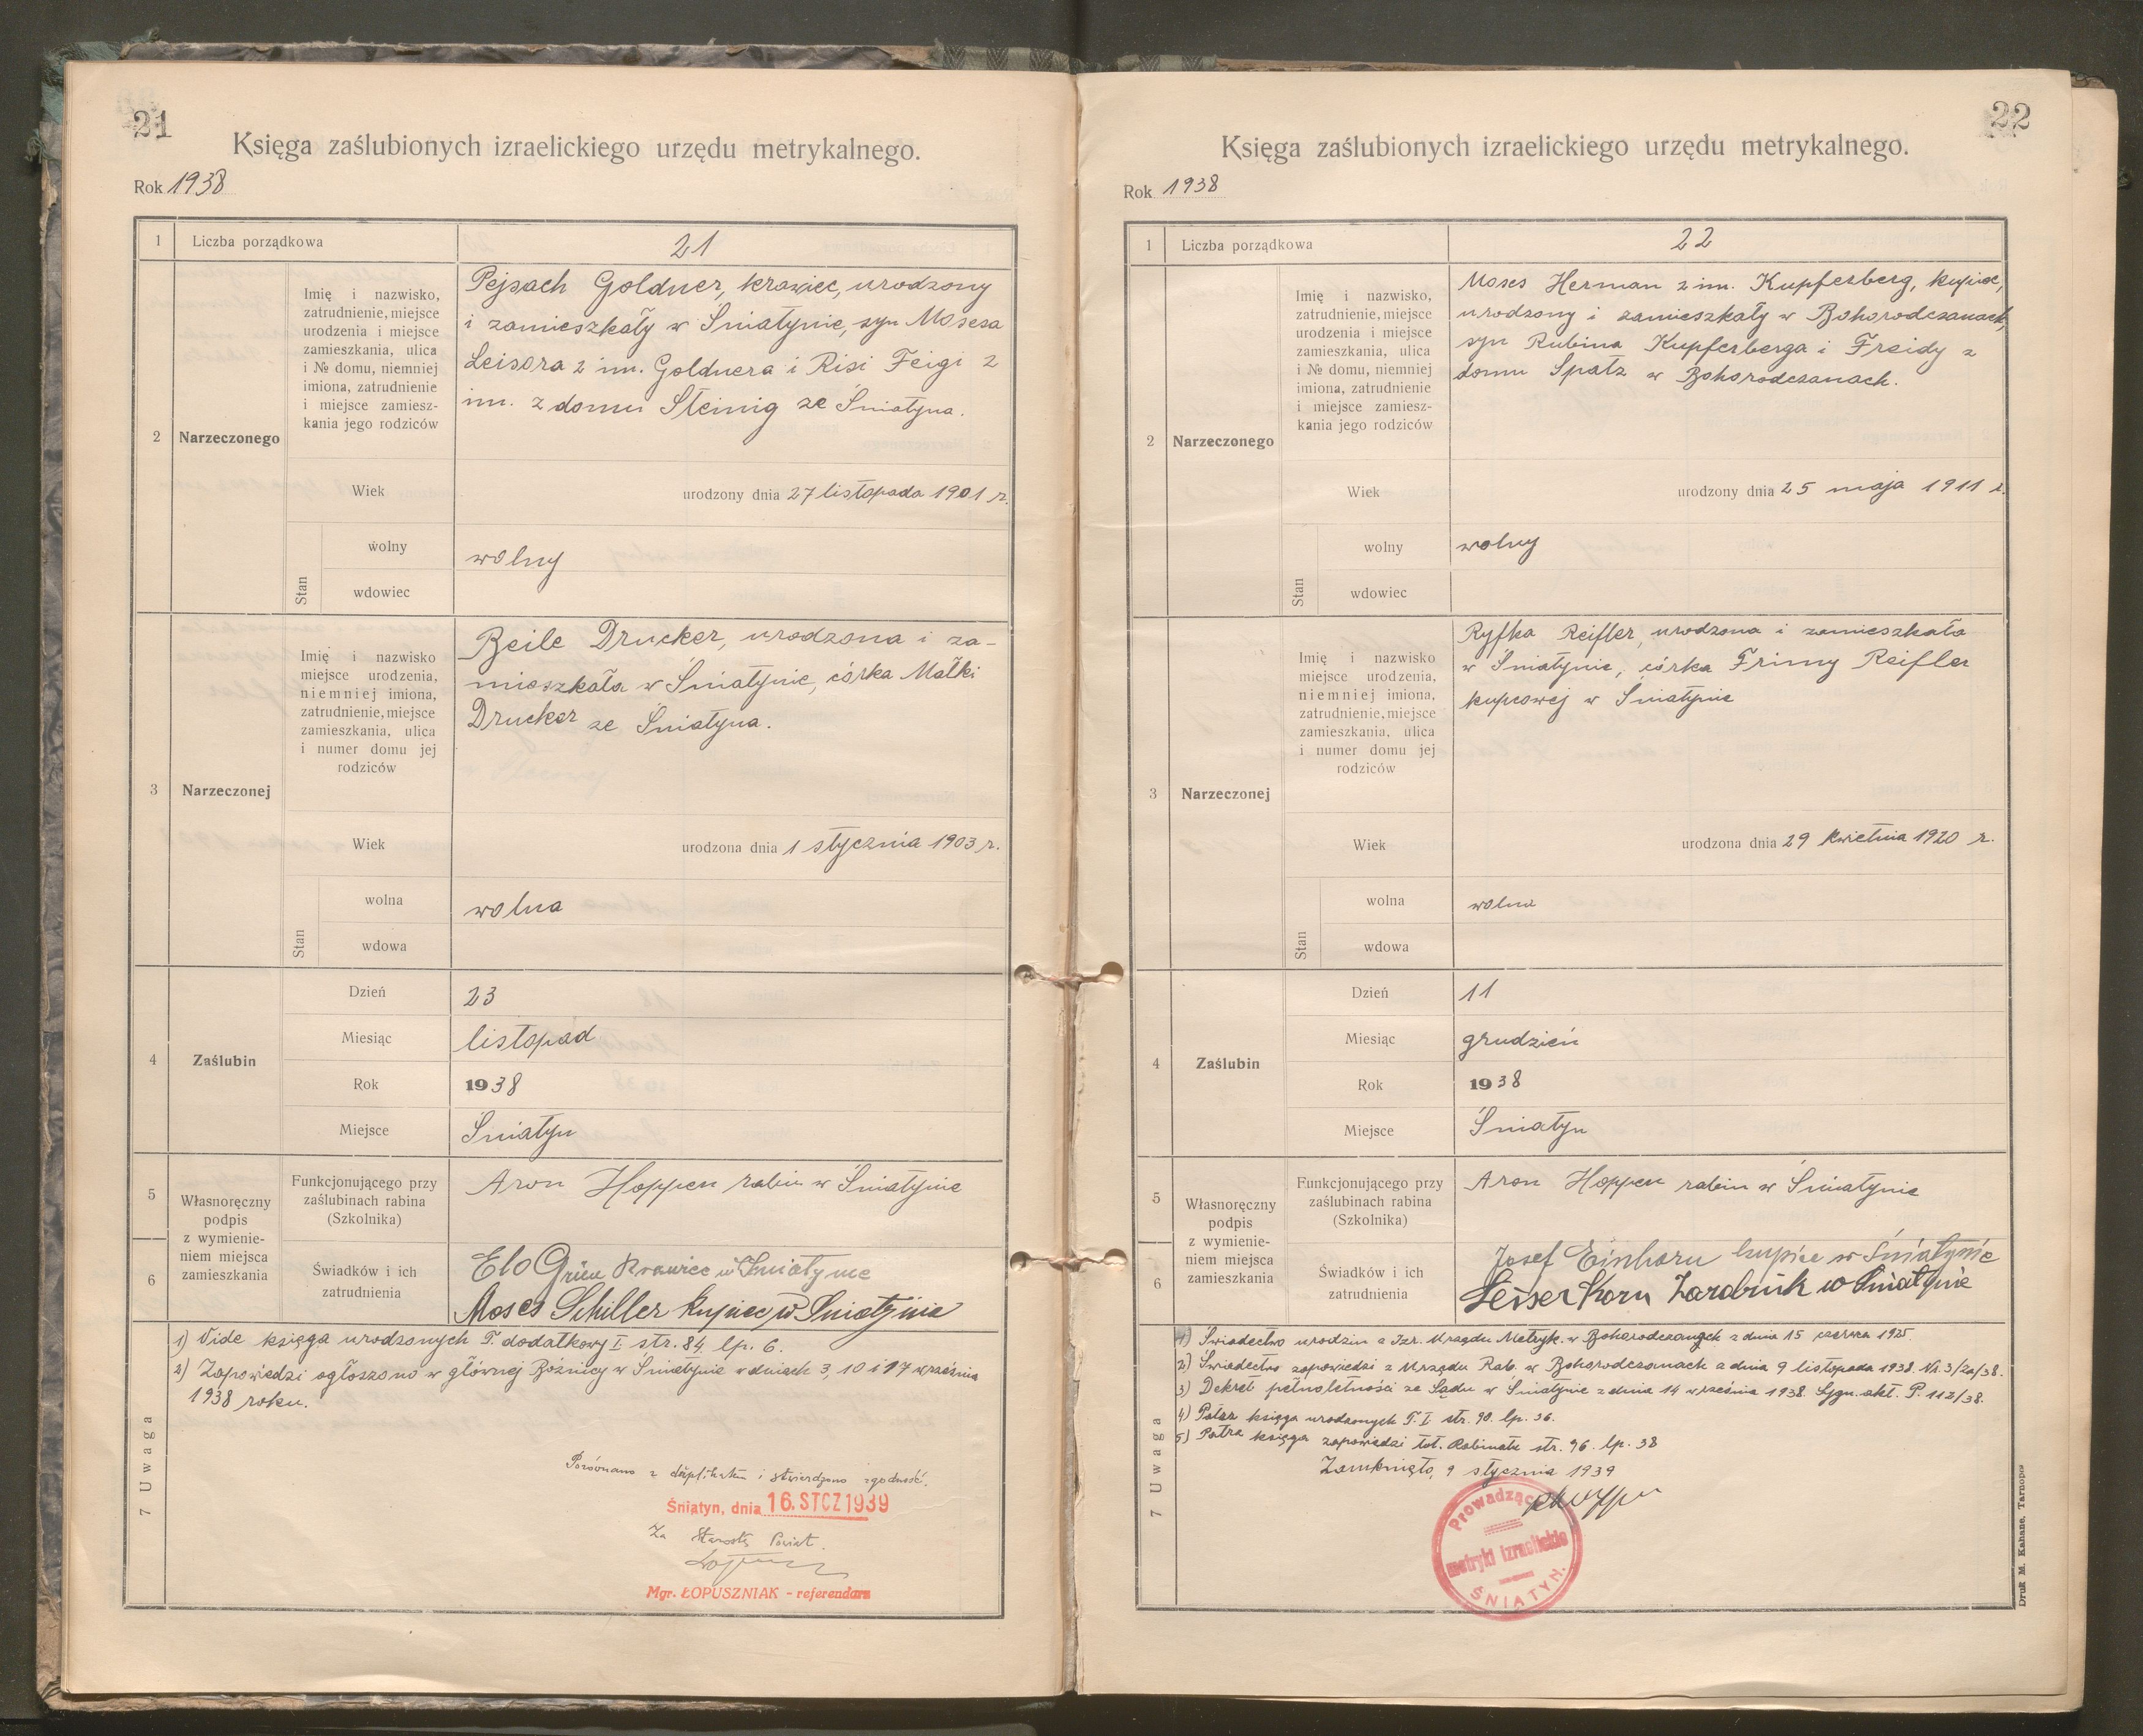 21
Księga zaślubionych izraelickiego urzędu metrykalnego.
Rok 1938
1 Liczba porządkowa 21
2 Narzeczonego
Imię i nazwisko,
zatrudnienie, miejsce
urodzenia i miejsce
zamieszkania, ulica
i № domu, niemniej
imiona, zatrudnienie
i miejsce zamiesz-
kania jego rodziców
Pejsach Goldner, krawiec, urodzony
i zamieszkały w Śniatynie, syn Mosesa
Leisora 2 im. Goldnera i Risi Feigi 2
im. z domu Steinig ze Śniatyna.
Wiek urodzony dnia 27 listopada 1901 r.
Stan
wolny wolny
wdowiec
3 Narzeczonej
Imię i nazwisko
miejsce urodzenia,
niemniej imiona,
zatrudnienie, miejsce
zamieszkania, ulica
i numer domu jej
rodziców
Beile Drucker, urodzona i za-
mieszkała w Śniatynie, córka Malki
Drucker ze Śniatyna.
Wiek urodzona dnia 1 stycznia 1903 r.
Stan
wolna wolna
wdowa
4 Zaślubin
Dzień 23
Miesiąc listopad
Rok 1938
Miejsce Śniatyn
5
6
Własnoręczny
podpis
z wymienie-
niem miejsca
zamieszkania
Funkcjonującego przy
zaślubinach rabina
(Szkolnika)
Aron Hoppen rabin w Śniatynie
Świadków i ich
zatrudnienia
Elo Grün Krawiec w Śniatynie
Moses Schiller kupiec w Śniatynie
7 Uwaga
1) Vide księga urodzonych T. dodatkowy I str. 84. lp. 6.
2) Zapowiedzi ogłoszono w głównej Bóżnicy w Śniatynie w dniach 3, 10 i 17 września
1938 roku.
Porównano z duplikatem i stwierdzono zgodność.
Śniatyn, dnia 16. STCZ 1939
Za Starostę Powiat.
Mgr. ŁOPUSZNIAK - referendarz
22
Księga zaślubionych izraelickiego urzędu metrykalnego.
Rok 1938
1 Liczba porządkowa 22
2 Narzeczonego
Imię i nazwisko,
zatrudnienie, miejsce
urodzenia i miejsce
zamieszkania, ulica
i № domu, niemniej
imiona, zatrudnienie
i miejsce zamiesz-
kania jego rodziców
Moses Herman 2 im. Kupferberg, kupiec,
urodzony i zamieszkały w Bohorodczanach,
syn Rubina Kupferberga i Freidy z
domu Spatz w Bohorodczanach.
Wiek urodzony dnia 25 maja 1911 r.
Stan
wolny wolny
wdowiec
3 Narzeczonej
Imię i nazwisko
miejsce urodzenia,
niemniej imiona,
zatrudnienie, miejsce
zamieszkania, ulica
i numer domu jej
rodziców
Ryfka Reifler, urodzona i zamieszkała
w Śniatynie, córka Frimy Reifler
kupcowej w Śniatynie
Wiek urodzona dnia 29 kwietnia 1920 r.
Stan
wolna wolna
wdowa
4 Zaślubin
Dzień 11
Miesiąc grudzień
Rok 1938
Miejsce Śniatyn
5
6
Własnoręczny
podpis
z wymienie-
niem miejsca
zamieszkania
Funkcjonującego przy
zaślubinach rabina
(Szkolnika)
Aron Hoppen rabin w Śniatynie
Świadków i ich
zatrudnienia
Josef Einhorn kupiec w Śniatynie
Leiser Korn Zarobnik w Śniatynie
7 Uwaga
1) Świadectwo urodzin z Izr. Urzędu Metryk. w Bohorodczanach z dnia 15 czerwca 1925.
2) Świadectwo zapowiedzi z Urzędu Rab. w Bohorodczanach z dnia 9 listopada 1938. Nr. 3/2a/38.
3) Dekret pełnoletności ze Sądu w Śniatynie z dnia 14 września 1938. Sygn. akt. P. 112/38.
4) Patrz księga urodzonych T. I. str. 90. lp. 36.
5) Patrz księga zapowiedzi tut. Rabinatu str. 96. lp. 38
Zamknięto, 9 stycznia 1939
Prowadzący
metryki izraelickie
ŚNIATYN.
Druk M. Kahane, Tarnopol